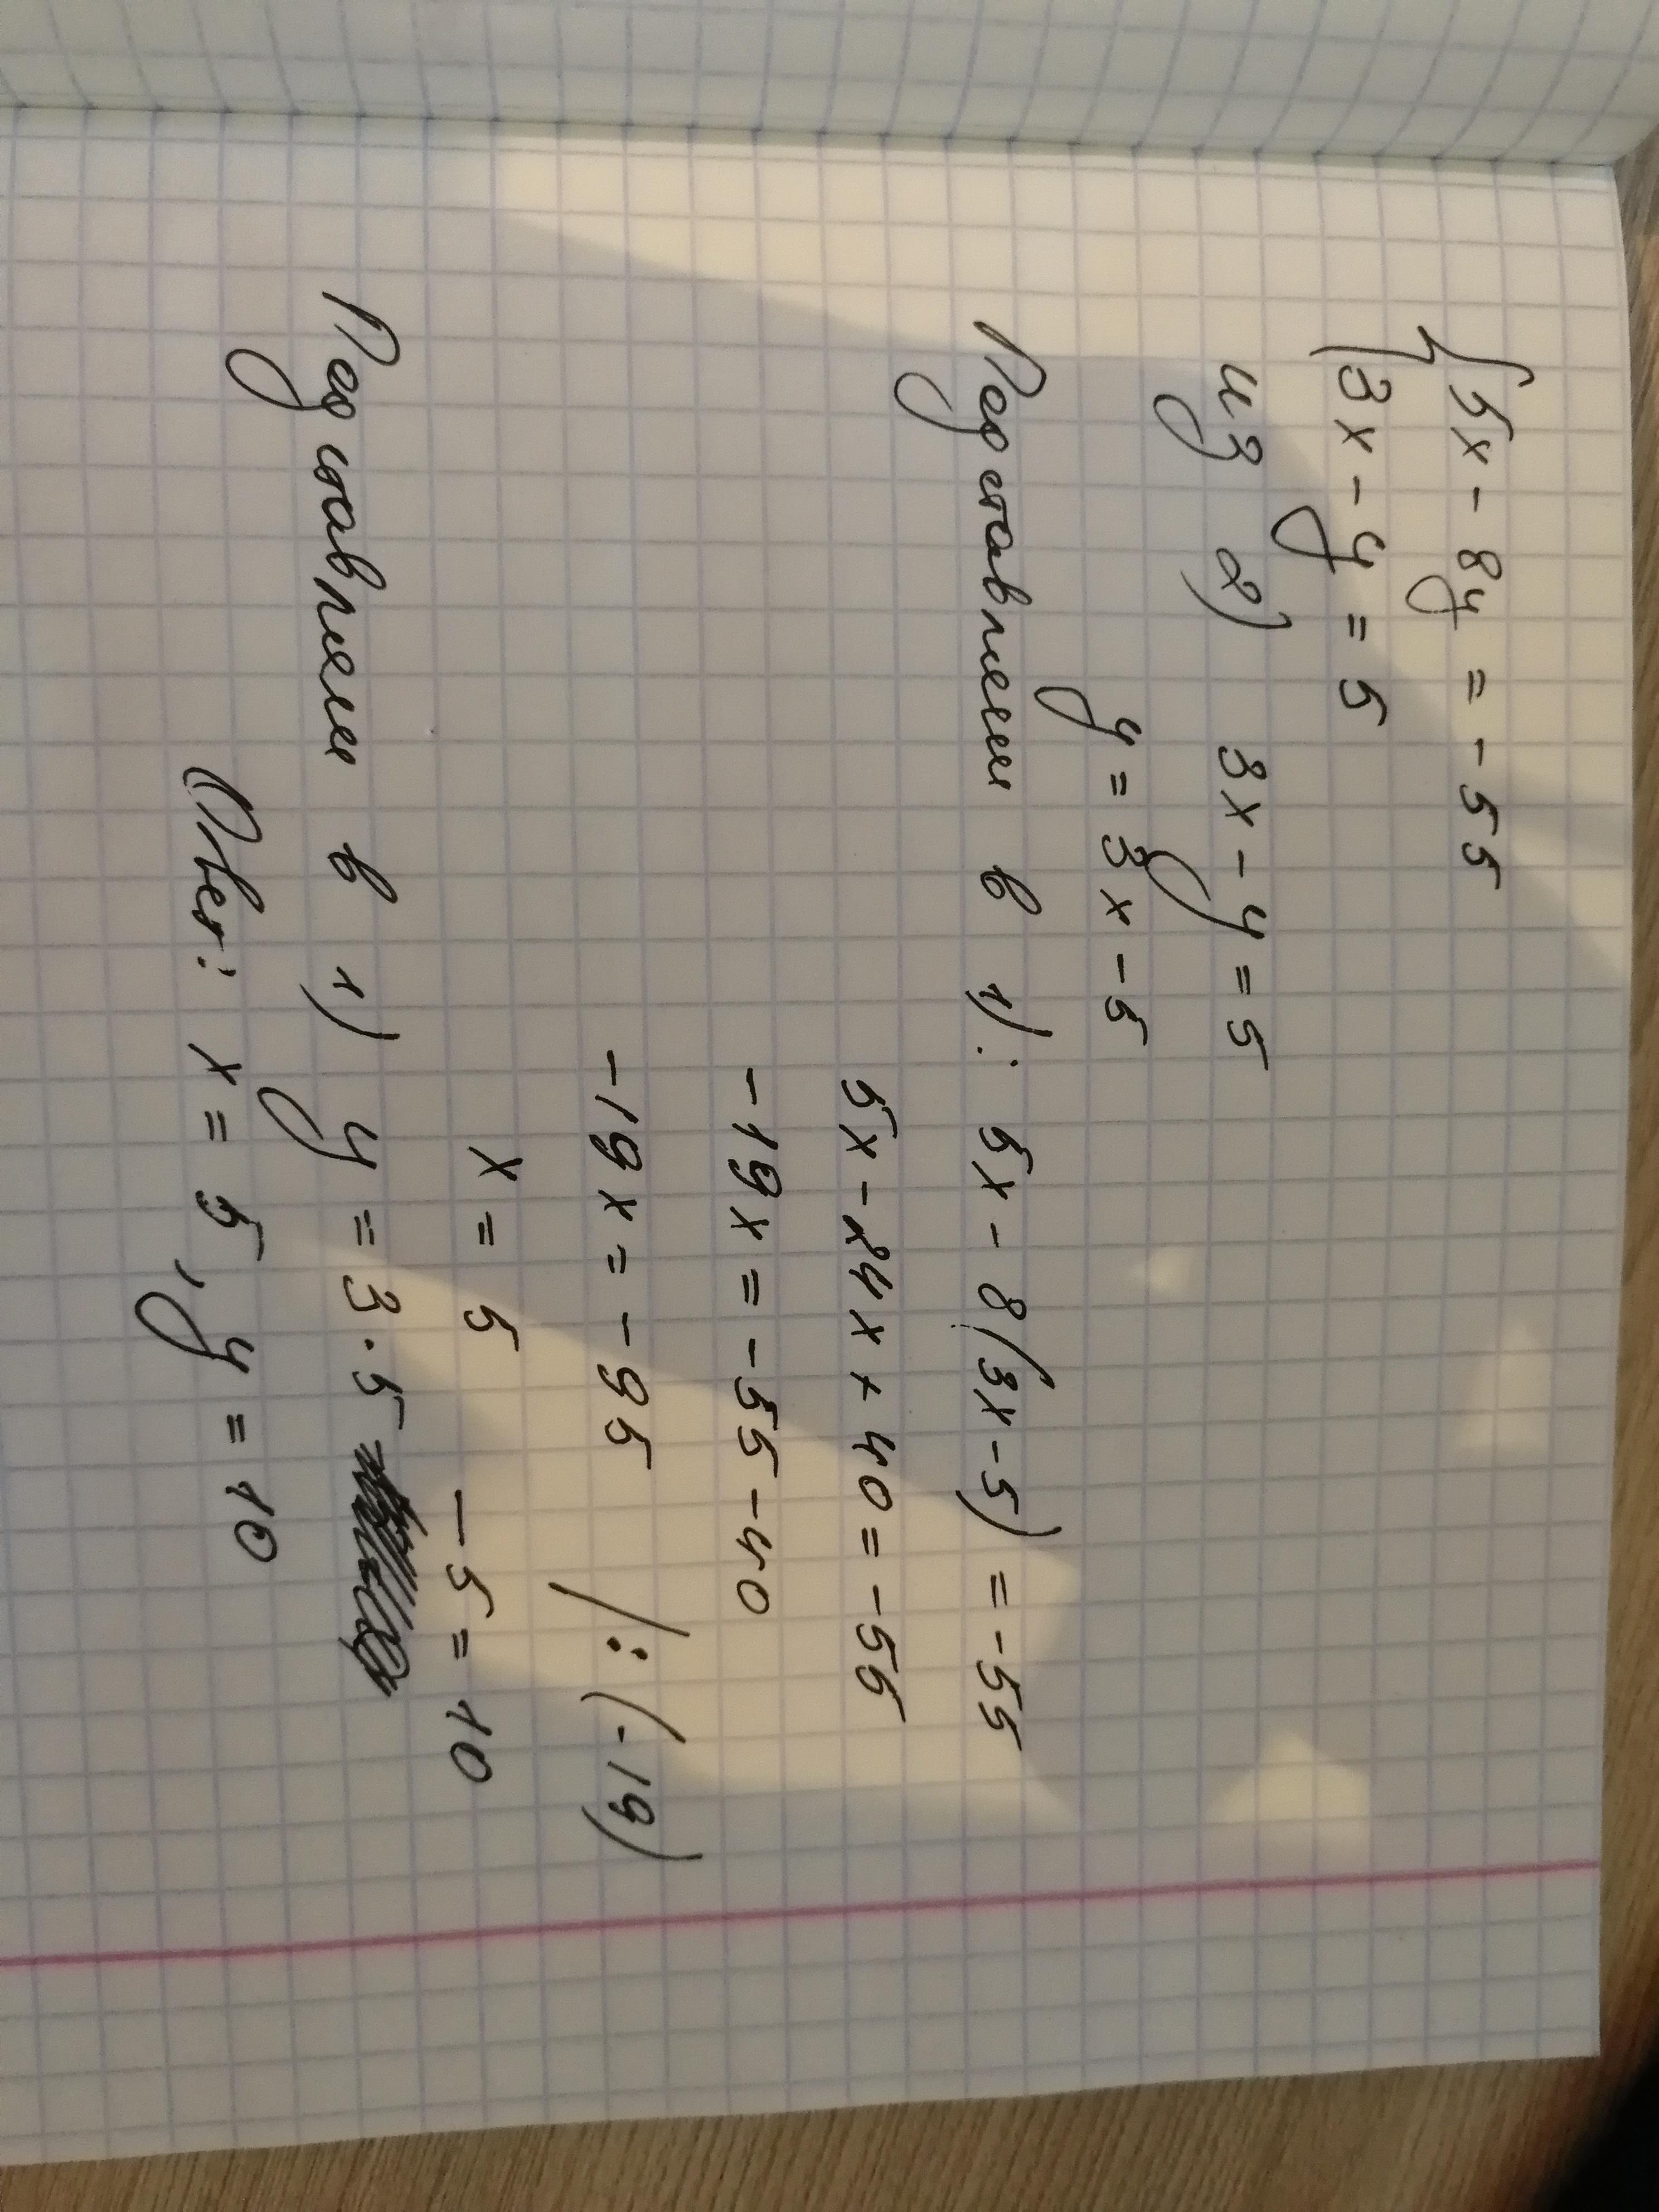 { 5x - 8y = -55
3x - y = 5
из 2) 3x - y = 5
y = 3x - 5
Подставляем в 1): 5x - 8(3x - 5) = -55
5x - 24x + 40 = -55
-19x = -55 - 40
-19x = -95 /:(-19)
x = 5
Подставляем в 1) y = 3·5 - 5 = 10
Ответ: x = 5, y = 10